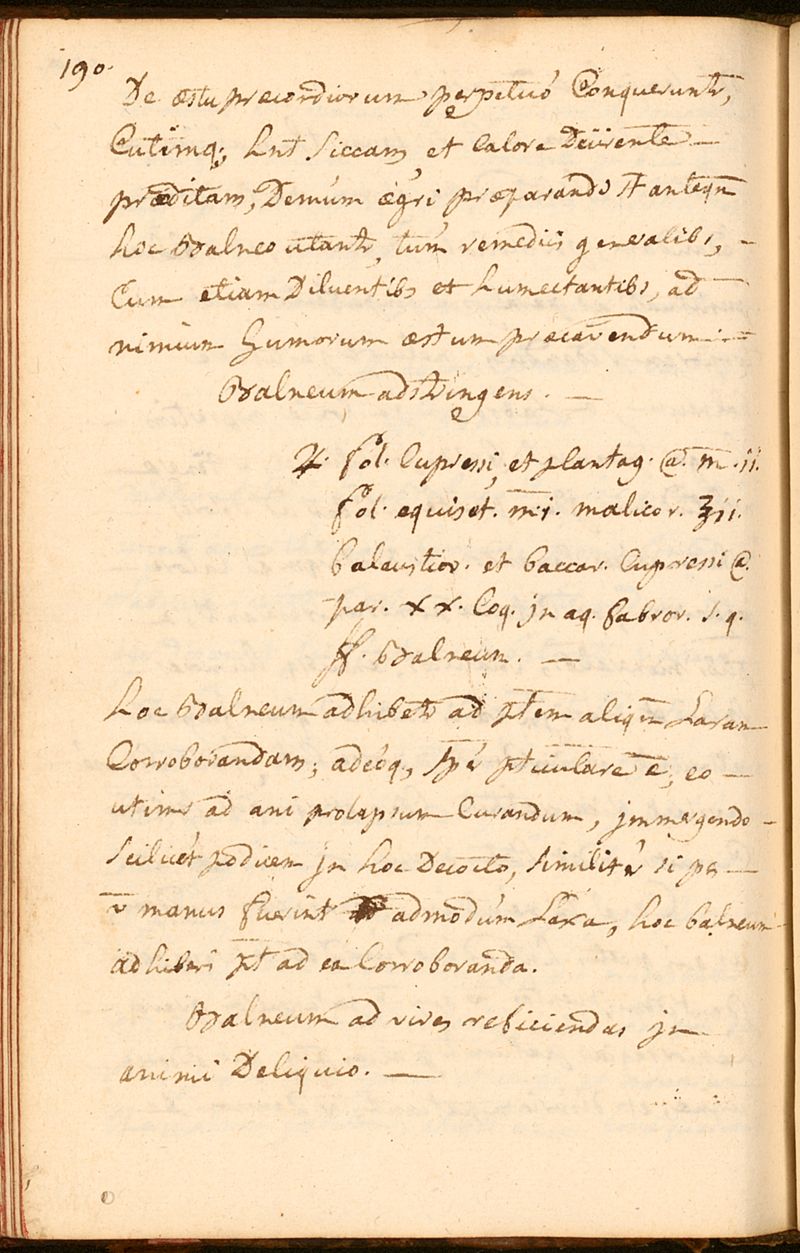 190.
De æstu præcordiorum perpetuó Conqueruntr,
Cutimq; hnt siccam, et calore Deurente —
præditam, Demúm ægri præparandi st anteqm
hoc Balneo utantr, túm remediis generalibs, -
Cum etiam Diluentibs et humectantibs, ad —
nimium humorum æstum præcavendum. —
Balneum adstringens. —
♃. fol. Cupressi, et plantag. @. m. ii.
fol. equiset. m. i. malicor. ʒii.
balaustior. et baccar. Cupressi @.
par. xx. Coq. jn aq. fabror. s. q.
ff. Balneum. —
hoc Balneum adhibetr ad ptem aliqm Laxam
Corroborandam; adeóq, spér pticulare ē, eo —
utimr ad ani prolapsum Curandum, jmmergendo -
scilicét podicem jn hoc Decocto, similitér si pes —
v̄ manus fuerint admodúm Laxa, hoc balneum
adhiberi pt ad ea Corroboranda.
Balneum ad vires reficiendas jn
animi Deliquio. —